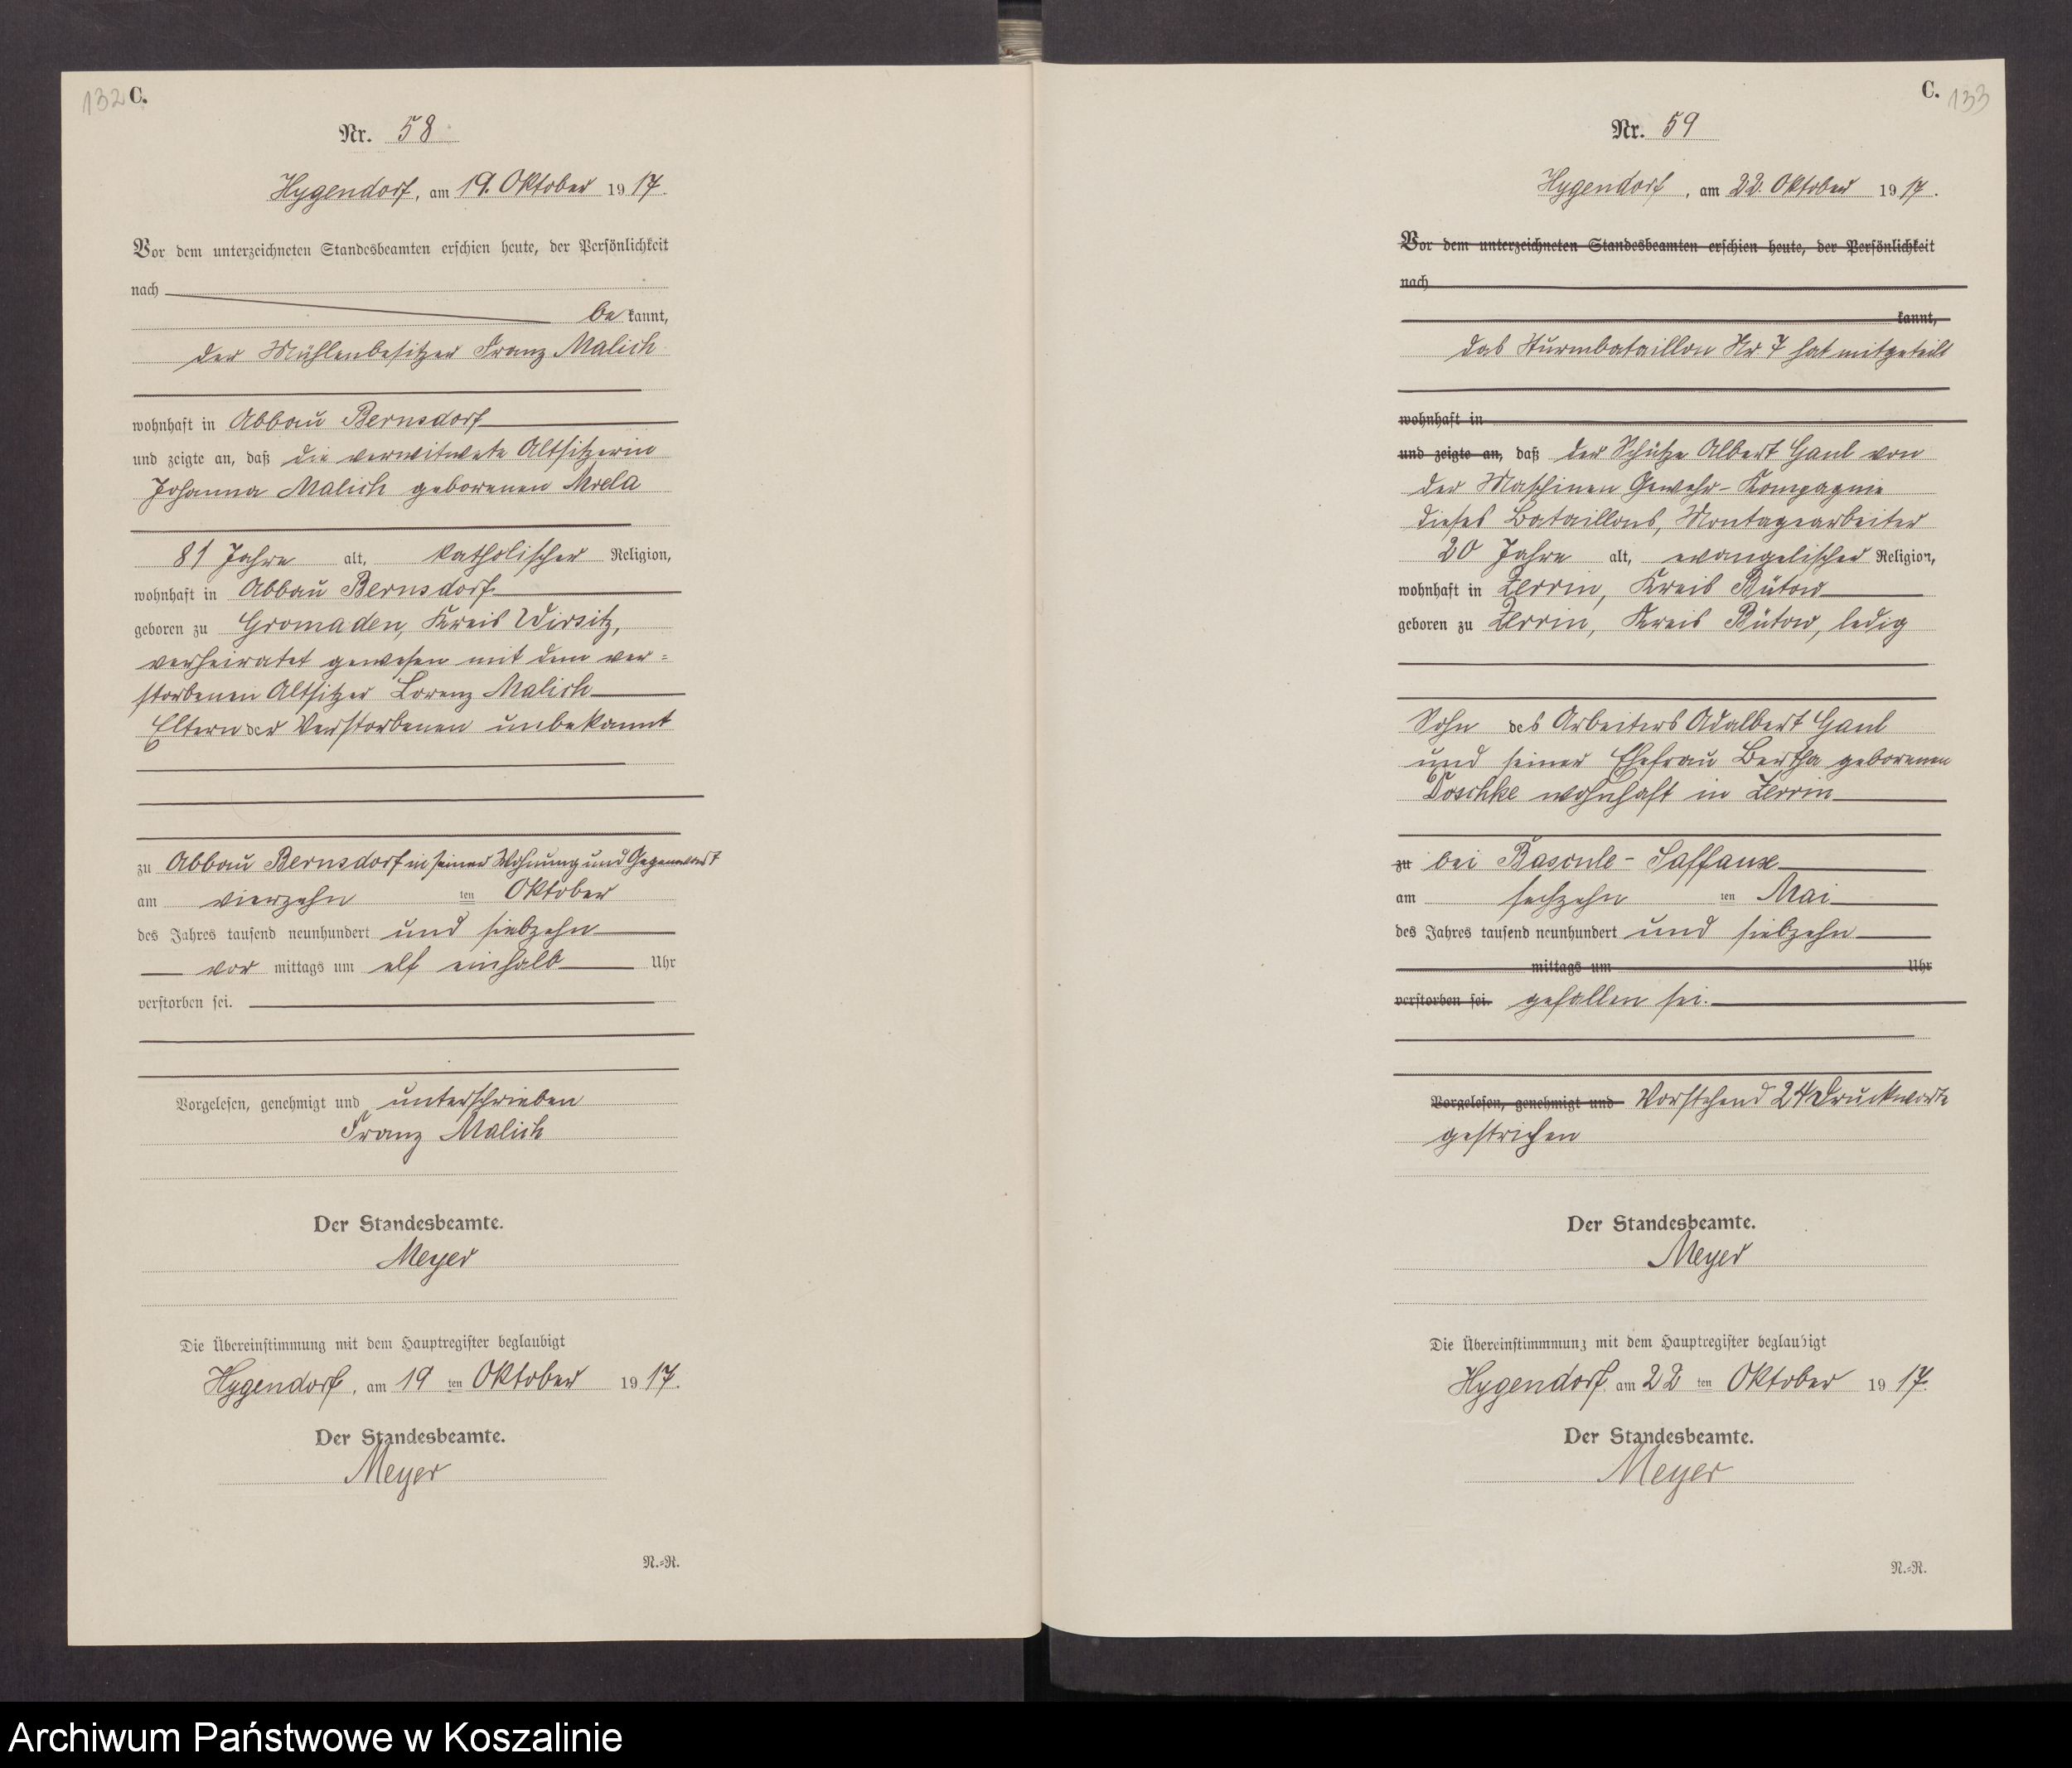 132 C.
Nr. 58
Hygendorf, am 19. Oktober 1917.
Vor dem unterzeichneten Standesbeamten erschien heute, der Persönlichkeit
nach
be kannt,
der Mühlenbesitzer Franz Malich
wohnhaft in Abbau Bernsdorf
und zeigte an, daß die verwitwete Altsitzerin
Johanna Malich geborenen Mrela
81 Jahre alt, katholischer Religion,
wohnhaft in Abbau Bernsdorf
geboren zu Gromaden, Kreis Wirsitz,
verheiratet gewesen mit dem ver=
storbenen Altsitzer Lorenz Malich
Eltern der Verstorbenen unbekannt
zu Abbau Bernsdorf in seiner Wohnung und Gegenwart
am vierzehn ten Oktober
des Jahres tausend neunhundert und siebzehn
vor mittags um elf einhalb Uhr
verstorben sei.
Vorgelesen, genehmigt und unterschrieben
Franz Malich
Der Standesbeamte.
Meyer
Die Übereinstimmung mit dem Hauptregister beglaubigt
Hygendorf, am 19 ten Oktober 1917.
Der Standesbeamte.
Meyer
N.=R.
C. 133
Nr. 59
Hygendorf, am 22. Oktober 1917.
Vor dem unterzeichneten Standesbeamten erschien heute, der Persönlichkeit
nach
kannt,
das Sturmbataillon Nr 7 hat mitgeteilt
wohnhaft in
und zeigte an, daß der Schütze Albert Gaul von
der Maschinen Gewehr-Kompagnie
dieses Bataillons, Montagearbeiter
20 Jahre alt, evangelischer Religion,
wohnhaft in Zerrin, Kreis Bütow
geboren zu Zerrin, Kreis Bütow, ledig
Sohn des Arbeiters Adalbert Gaul
und seiner Ehefrau Bertha geborenen
Doschke wohnhaft in Zerrin
zu bei Bascule-Laffaux
am sechzehn ten Mai
des Jahres tausend neunhundert und siebzehn
mittags um Uhr
verstorben sei. gefallen sei.
Vorgelesen, genehmigt und Vorstehend 24 Druckworte
gestrichen
Der Standesbeamte.
Meyer
Die Übereinstimmnung mit dem Hauptregister beglaubigt
Hygendorf am 22 ten Oktober 1917.
Der Standesbeamte.
Meyer
N.=R.
Archiwum Państwowe w Koszalinie